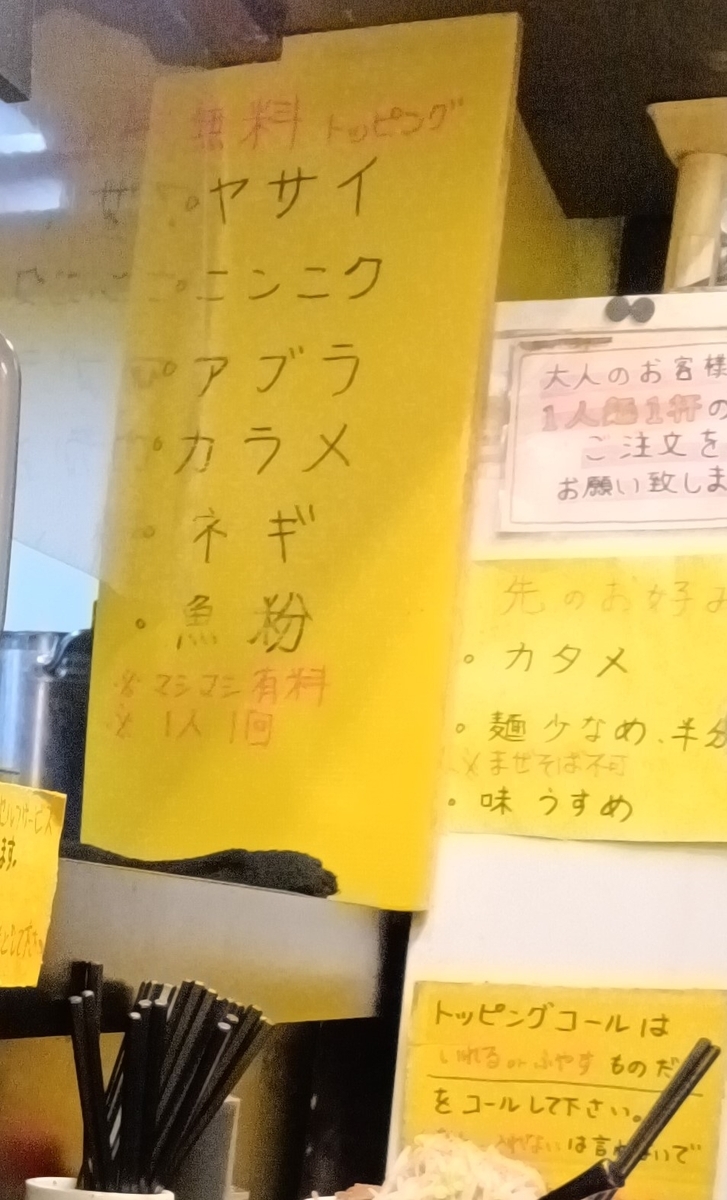 無料トッピング
・ヤサイ
・ニンニク
・アブラ
・カラメ
・ネギ
・魚粉
※マシマシ有料
※1人1回
大人のお客様
1人麺1杯の
ご注文を
お願い致しま
先のお好み
・カタメ
・麺少なめ、半分
※まぜそば不可
・味うすめ
セルフサービス
ます。
トッピングコールは
いれるorふやすものだ
をコールして下さい。
は言わないで